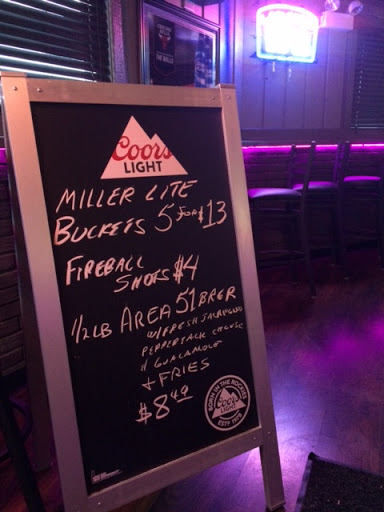 Coors
LIGHT
MILLER LITE
BUCKETS 5 FOR $13
FIREBALL
SHOTS $4
1/2 LB AREA 51 BRGR
W/ FRESH JALAPENO
PEPPERJACK CHEESE
N GUACAMOLE
+ FRIES
$8.49
BORN IN THE ROCKIES
Coors
LIGHT
ESTD 1978